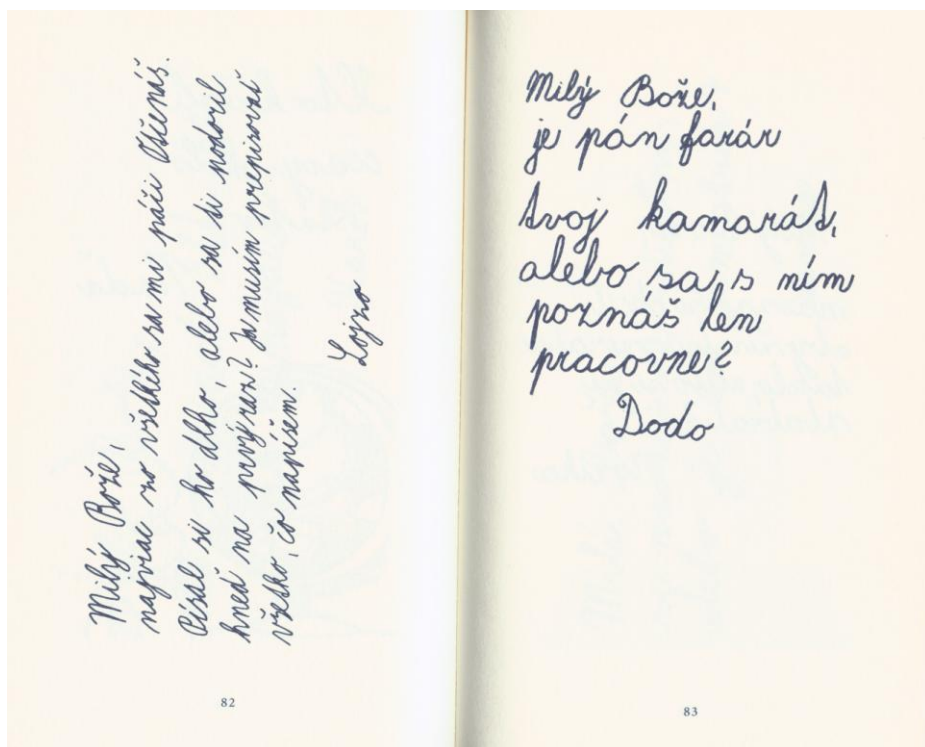 Milý Bože,
najviac zo všetkého sa mi páči Otčenáš.
Písal si ho dlho, alebo sa ti podaril
hneď na prvý raz? Ja musím prepisovať
všetko, čo napíšem.
Lojzo
82
Milý Bože,
je pán farár
tvoj kamarát,
alebo sa s ním
poznáš len
pracovne?
Dodo
83